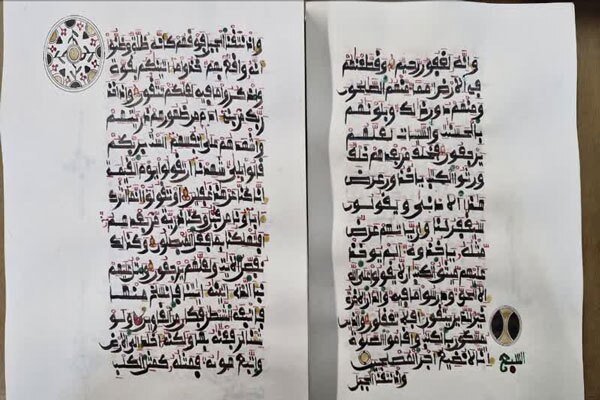 وإنه لغفور رحيم وقطعنهم
في الأرض أمما منهم الصلحون
ومنهم دون ذلك وبلونهم
بالحسنت والسيئات لعلهم
يرجعون فخلف من بعدهم خلف
ورثوا الكتب يأخذون عرض
هذا الأدنى ويقولون
سيغفر لنا وإن يأتهم عرض
مثله يأخذوه ألم يؤخذ
عليهم ميثق الكتب أن لا يقولوا على الله
إلا الحق ودرسوا ما فيه والدار الآخرة
خير للذين يتقون أفلا تعقلون والذين
يمسكون بالكتب وأقاموا الصلوة
إنا لا نضيع أجر المصلحين
السبع
وإذ نتقنا الجبل
وإذ نتقنا الجبل فوقهم كأنه ظلة وظنوا
أنه واقع بهم خذوا ما آتينكم بقوة
واذكروا ما فيه لعلكم تتقون وإذ أخذ
ربك من بني آدم من ظهورهم ذريتهم
وأشهدهم على أنفسهم ألست بربكم
قالوا بلى شهدنا أن تقولوا يوم القيمة
إنا كنا عن هذا غفلين أو تقولوا إنما أشرك
آباؤنا من قبل وكنا ذرية من بعدهم
أفتهلكنا بما فعل المبطلون وكذلك
نفصل الآيت ولعلهم يرجعون واتل عليهم
نبأ الذي آتينه آيتنا فانسلخ منها
فأتبعه الشيطن فكان من الغاوين ولو
شئنا لرفعنه بها ولكنه أخلد إلى الأرض
واتبع هوىه فمثله كمثل الكلب